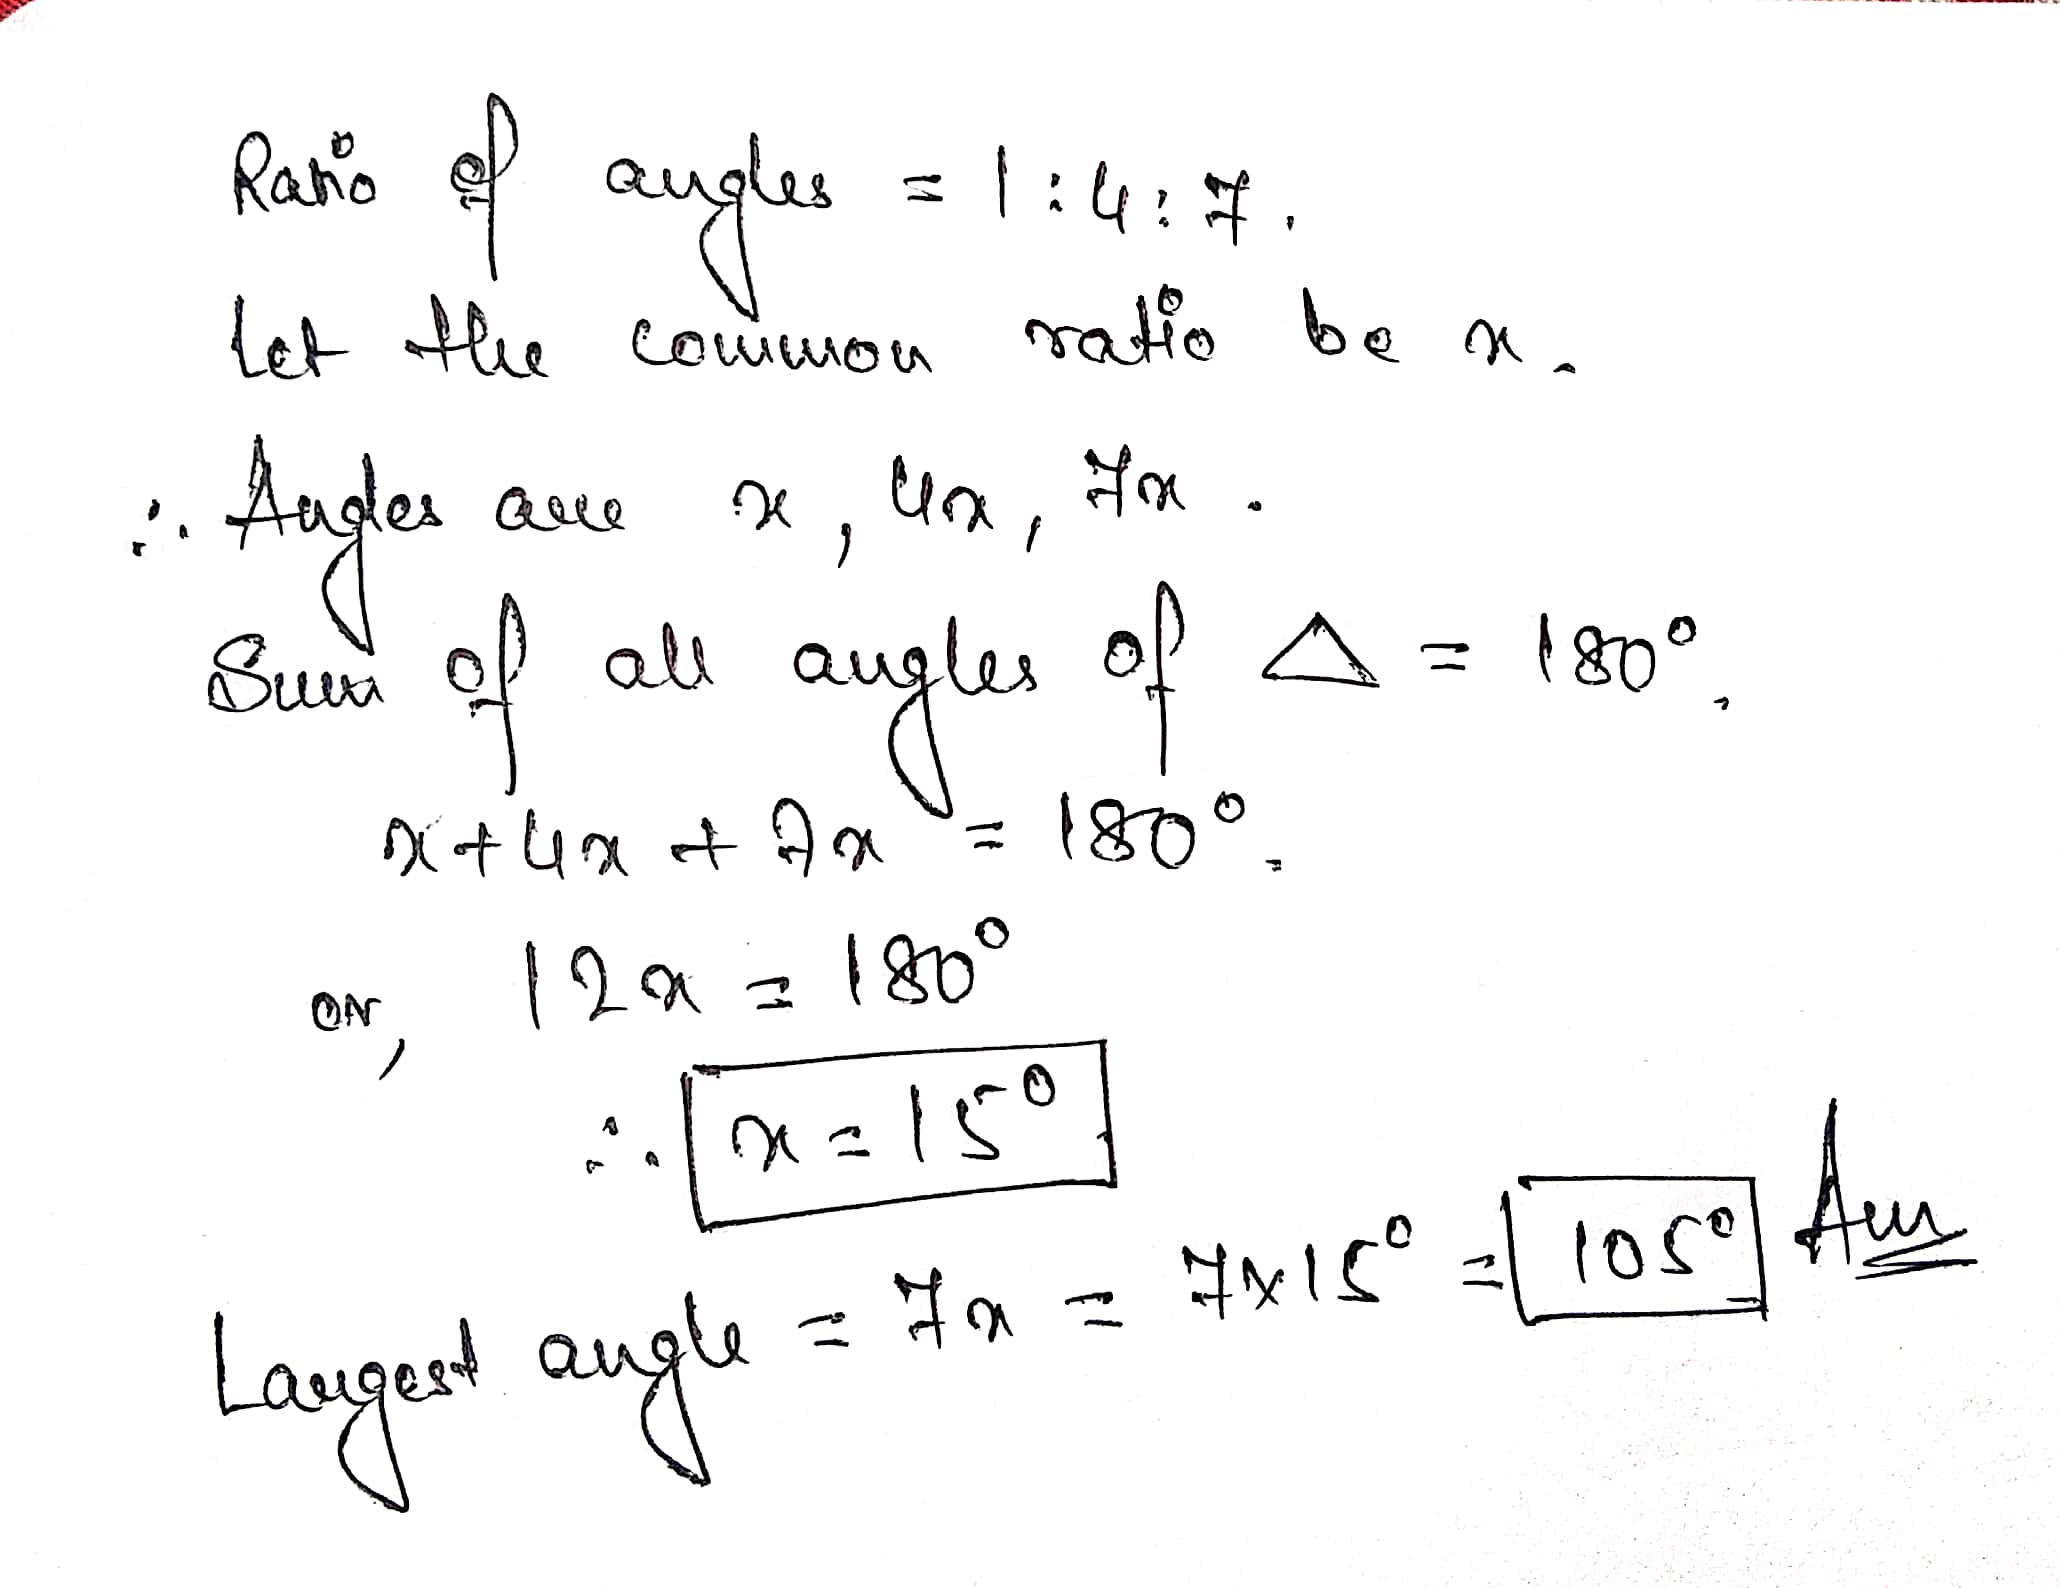 Ratio of angles = 1:4:7.
Let the common ratio be x.
∴ Angles are x, 4x, 7x.
Sum of all angles of △ = 180°.
x+4x+7x = 180°.
or, 12x = 180°
∴ x=15°
Largest angle = 7x = 7×15° = 105° Ans